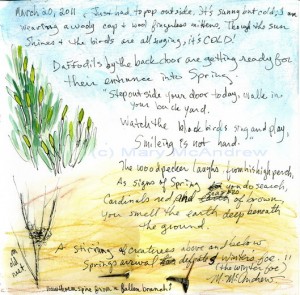 March 20, 2011 Just had to pop outside. It's sunny but cold, I am
wearing a wooly cap & wool fingerless mittens. Though the sun
shines & the birds are all singing, it's COLD!
Daffodils by the back door are getting ready for
their entrance into Spring.
"Step outside your door today, walk in
your back yard.
Watch the blackbirds sing and play,
Smileing is not hard.
(c) Mary McAndrew
The woodpecker laughs, from his high perch,
As signs of Spring you do search,
Cardinals red, and of brown,
You smell the earth deep beneath
the ground.
A stirring of creatures above and below
Springs arrival defeats winters foe."
(the winter foe)
M. McAndrew
old nest
hawthorn spine from a fallen branch